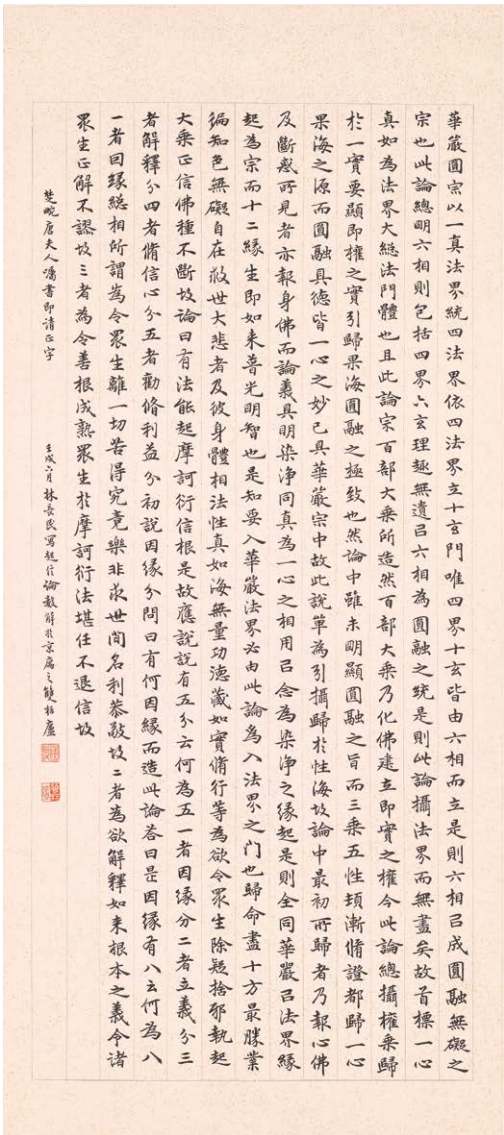 華嚴圓宗以一真法界統四法界依四法界立十玄門唯四界十玄皆由六相而立是則六相㠯成圓融無礙之
宗也此論總明六相則包括四界六玄理趣無遺㠯六相為圓融之統是則此論攝法界而無盡矣故首標一心
真如為法界大緫法門體也且此論宗百部大乘所造然百部大乘乃化佛建立即實之權今此論總攝權乘歸
於一實要顯即權之實引歸果海圓融之極致也然論中雖未明顯圓融之旨而三乘五性頓漸脩證都歸一心
果海之源而圓融具德皆一心之妙已具華嚴宗中故此說單為引攝歸於性海故論中最初所歸者乃報心佛
及斷惑所見者亦報身佛而論義具明染淨同真為一心之相用㠯念為染淨之緣起是則全同華嚴㠯法界緣
起為宗而十二緣生即如来普光明智也是知要入華嚴法界必由此論為入法界之門也歸命盡十方最勝業
徧知色無礙自在救世大悲者及彼身體相法性真如海無量功德藏如實脩行等為欲令眾生除疑捨邪執起
大乘正信佛種不斷故論曰有法能起摩訶衍信根是故應說說有五分云何為五一者因緣分二者立義分三
者解釋分四者脩信心分五者勸脩利益分初說因緣分問曰有何因緣而造此論答曰是因緣有八云何為八
一者因緣緫相所謂為令眾生離一切苦得究竟樂非求世間名利恭敬故二者為欲解釋如来根本之義令諸
眾生正解不謬故三者為令善根成熟眾生於摩訶衍法堪任不退信故
楚畹唐夫人屬書即請正字
壬戌六月林長民寫起信論敘解於京寓之雙栝廬